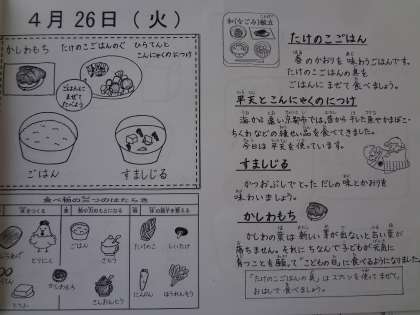 4月26日（火）
かしわもち
たけのこごはんのぐ
ひらてんと
こんにゃくのにつけ
ごはんに
まぜて
たべよう
ごはん
すましじる
食べ物の三つのはたらき
とりにく
ごはん
さとう
たけのこ
しいたけ
かしわもち
とうふ
こめおしんじ
にんじん
ほうれんそう
和(なごみ)献立
たけのこごはん
春のかおりを味わうごはんです。
たけのこごはんの具を
ごはんにまぜて食べましょう。
平天とこんにゃくのにつけ
海から遠い京都市では、昔から干した魚やかまぼこ・
ちくわなどの練り製品を食べてきました。
今日は平天を使っています。
すましじる
かつおぶしでとっただしの味とかおりを
味わいましょう。
かしわもち
かしわの葉は新しい芽が出ないと古い葉が
落ちません。それにちなんで子どもが元気に
育つことを願って「こどもの日」に食べるようになりました。
「たけのこごはんの具」はスプーンを使ってまぜて、
おはしで食べましょう。